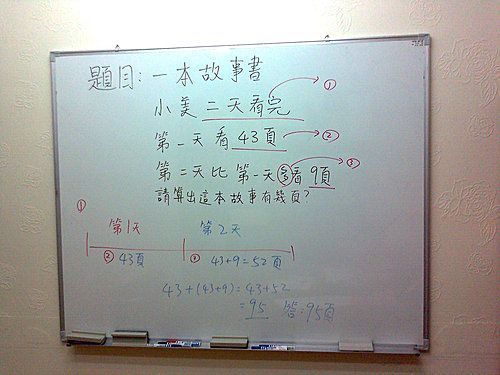 題目:一本故事書
小美二天看完 ①
第一天看43頁 ②
第二天比第一天多看9頁 ③
請算出這本故事有幾頁?
①
第1天 第2天
② 43頁 ③ 43+9=52頁
43+(43+9)=43+52
=95 答:95頁